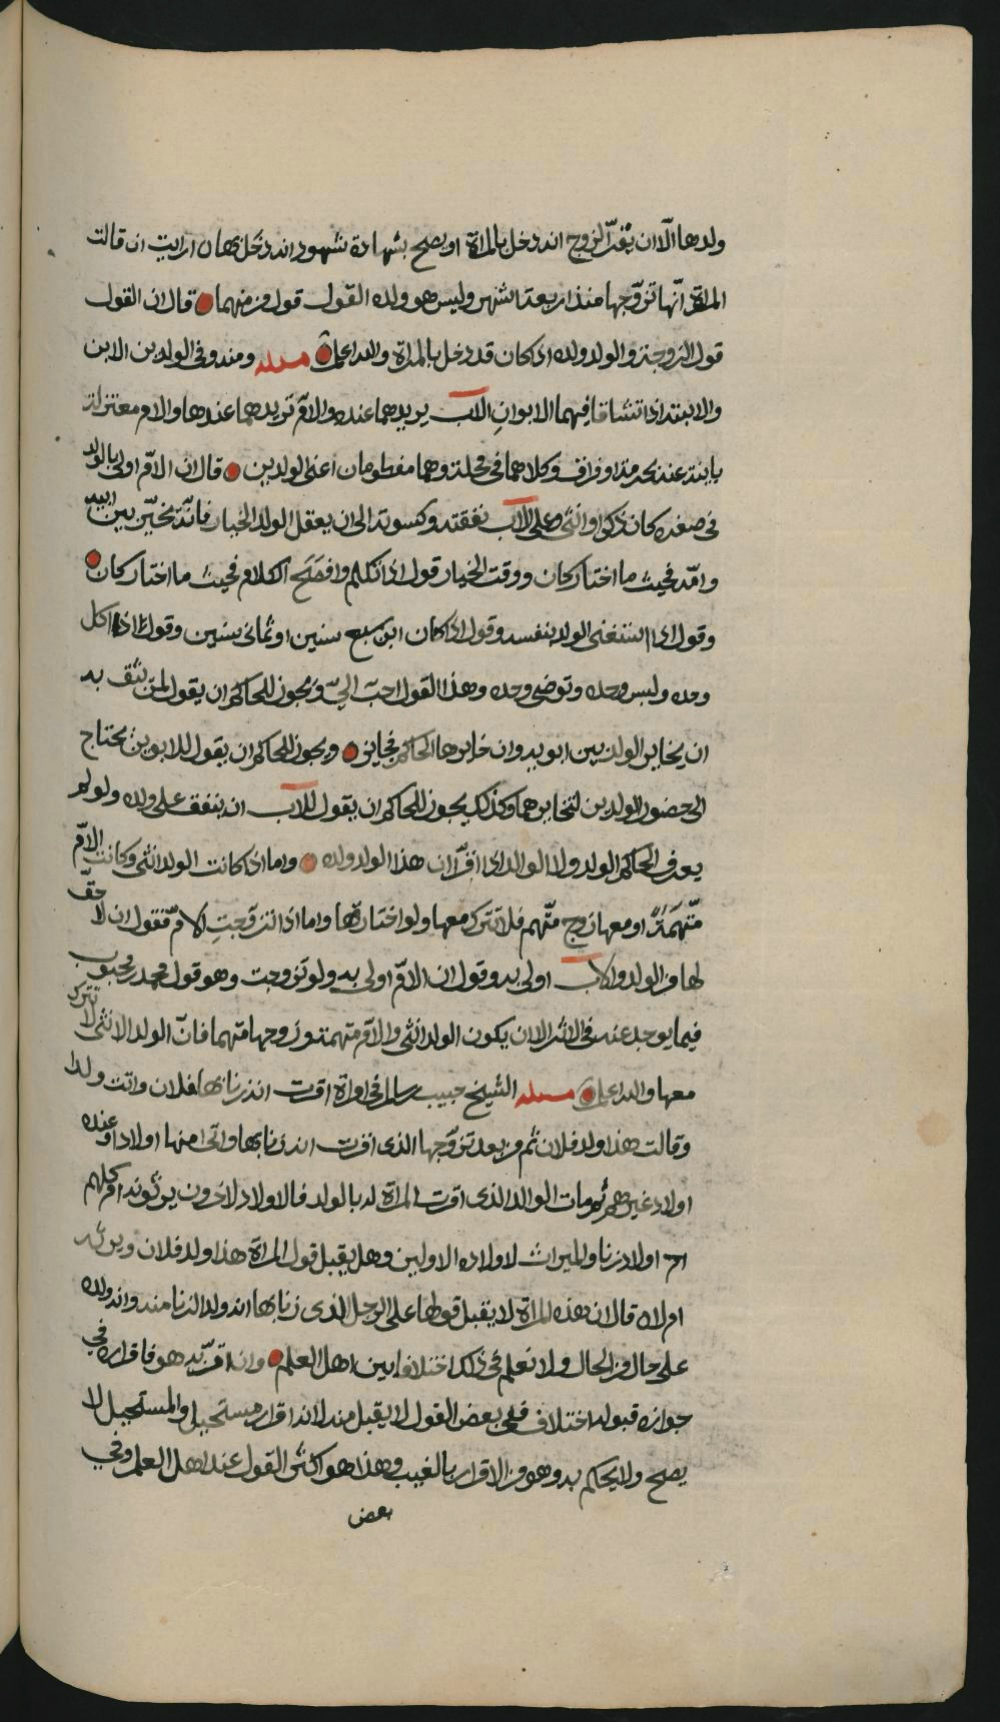 ولدها الّا ان يقرّ الزوج انه دخل بالمراة او يصح بشهادة شهود انه دخل بها ن ارايت ان قالت
المراة انّها تزوّجها منذ اربعة اشهر وليس هو ولده القول قول من منهما قال ان القول
قول الزوجة والولد ولده اذا كان قد دخل بالمراة والله اعلم مسئله ومنه وفي الولدين الابن
والابنة اذا تشاقا فيهما الابوان الاب يريدهما عنده والامّ تريدهما عندها والام معتزلة
باينة عنه بحرمة او فراق وكلاهما في محلة وهما مفطومان اعني الولدين قال ان الامّ اولى بالولد
في صغره كان ذكرا او انثى وعلى الاب نفقته وكسوته الى ان يعقل الولد الخيار فانّه يخيّر بين ابيه
وامّه فحيث ما اختار كان ووقت الخيار قول اذا تكلم وافصح الكلام فحيث ما اختار كان
وقول اذا استغنى الولد بنفسه وقول اذا كان ابن سبع سنين او ثماني سنين وقول اذا اكل
وحده ولبس وحده وتوضى وحده وهذا القول احبّ اليّ ويجوز للحاكم ان يقول لمن يثق به
ان يخاير الولد بين ابويه وان خايرها الحاكم فجايز ويجوز للحاكم ان يقول للابوين يحتاج
الى حضور الولدين لنخايرهما وكذلك يجوز للحاكم ان يقول للاب ان ينفق على ولده ولو لم
يعرف الحاكم الولد ولا الوالد اذا اقرّا ان هذا الولد ولده واما اذا كانت الولد انثى وكانت الامّ
متّهمَةً او معها زوج متّهم فلا تترك معها ولو اختارتها واما اذا تزوّجت الامّ فقول ان لا حقّ
لها من الولد والاب اولى به وقول ان الامّ اولى به ولو تزوجت وهو قول محمد بن محبوب
فيما يوجد عنه في الاثر الا ان يكون الولد انثى والامّ متهمة وزوجها متهما فانّ الولد الانثى لا تترك
معها والله اعلم مسئله الشيخ حبيب بن سالم في امراة اقرت انه زنا بها فلان واتت ولدا
وقالت هذا ولد فلان ثم من بعد تزوّجها الذي اقرت انه زنا بها واتى منها اولاد او عنده
اولاد غيرهم ثم مات الوالد الذي اقرت المراة له بالولد فالاولاد الاخرون يرثونه ام كلهم
ام اولاد زنا والميراث لاولاده الاولين وهل يقبل قول المراة هذا ولد فلان ويرثه
ام لا قال ان هذه المراة لا يقبل قولها على الرجل الذي زنا بها انه ولد الزنا منه وانه ولده
على حال من الحال ولا نعلم في ذلك اختلافا بين اهل العلم وان اقرّ به هو فاقراره في
جوازه قبوله اختلاف ففي بعض القول لا يقبل منه لانه اقرار مستحيل والمستحيل لا
يصح ولا يحكم به وهو من الاقرار بالغيب وهذا هو اكثر القول عند اهل العلم وفي
بعض